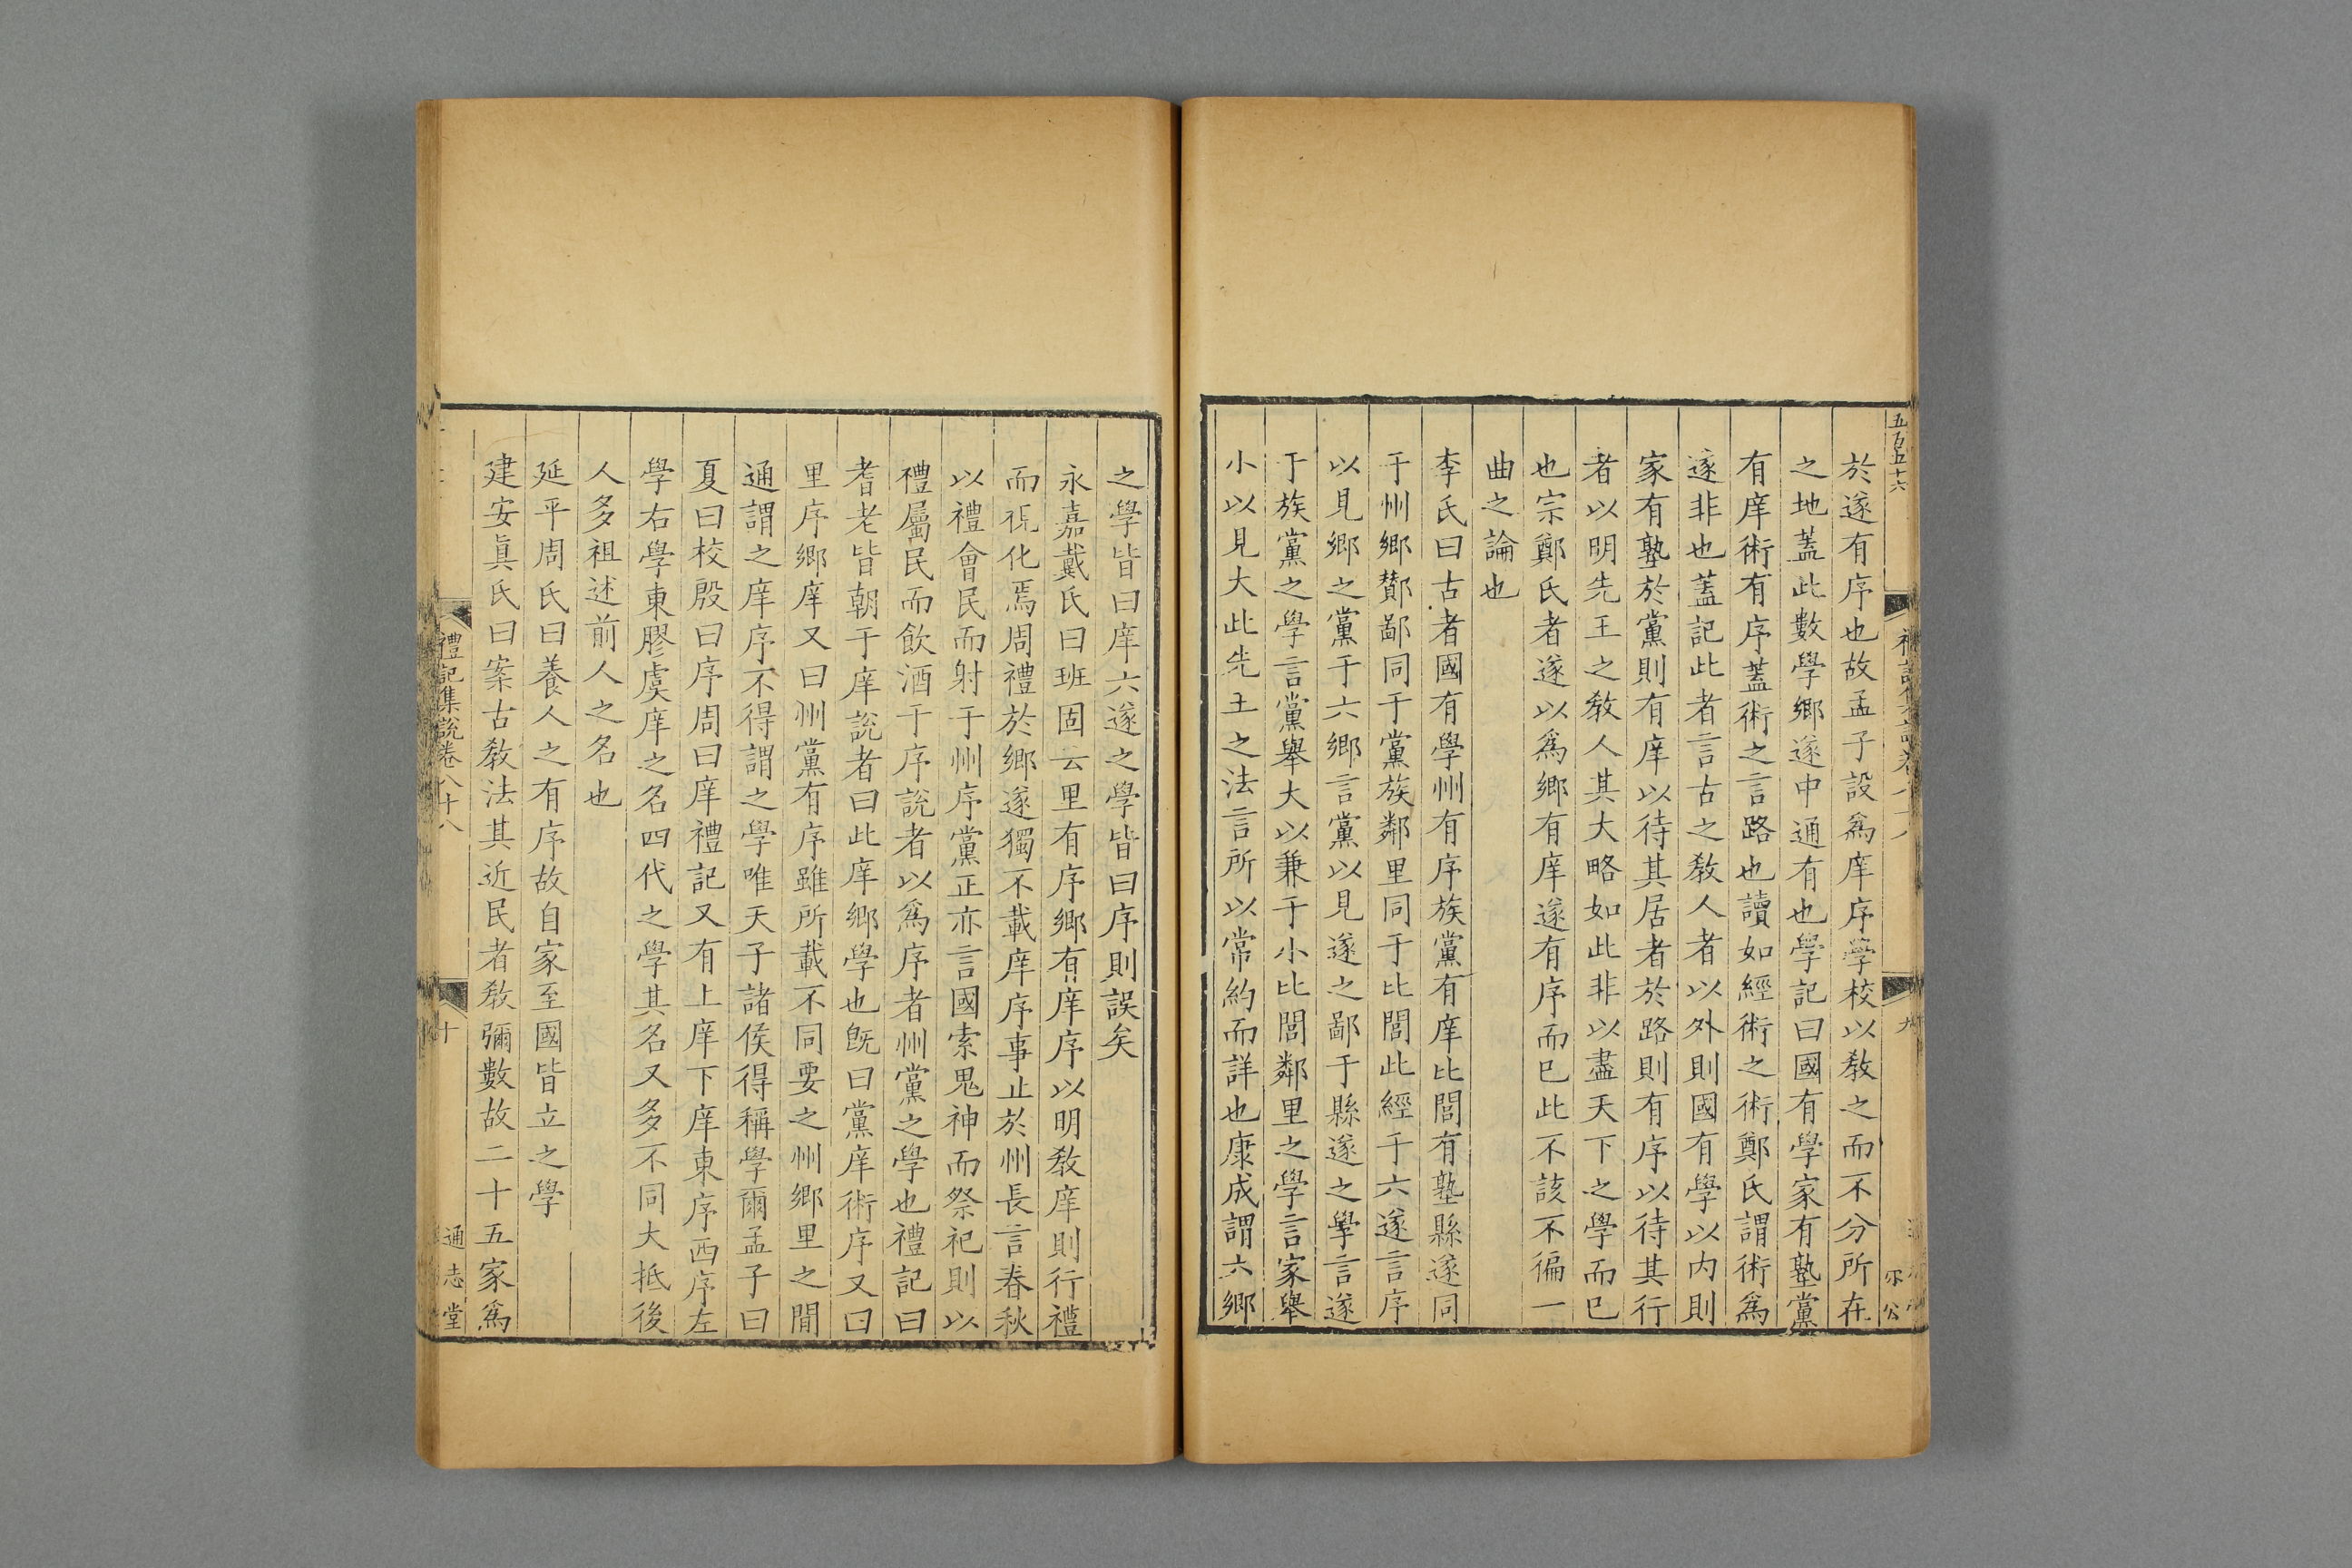 五百五十六
於遂有序也故孟子設爲庠序學校以敎之而不分所在
之地蓋此數學鄉遂中通有也學記曰國有學家有塾黨
有庠術有序蓋術之言路也讀如經術之術鄭氏謂術爲
遂非也蓋記此者言古之敎人者以外則國有學以内則
家有塾於黨則有庠以待其居者於路則有序以待其行
者以明先王之敎人其大略如此非以盡天下之學而已
也宗鄭氏者遂以爲鄉有庠遂有序而已此不該不徧一
曲之論也
李氏曰古者國有學州有序族黨有庠比閭有塾縣遂同
于州鄉酇鄙同于黨族鄰里同于比閭此經于六遂言序
以見鄉之黨于六鄉言黨以見遂之鄙于縣遂之學言遂
于族黨之學言黨舉大以兼于小比閭鄰里之學言家舉
小以見大此先王之法言所以常約而詳也康成謂六鄉
之學皆曰庠六遂之學皆曰序則誤矣
永嘉戴氏曰班固云里有序鄉有庠序以明敎庠則行禮
而視化焉周禮於鄉遂獨不載庠序事止於州長言春秋
以禮會民而射于州序黨正亦言國索鬼神而祭祀則以
禮屬民而飲酒于序說者以爲序者州黨之學也禮記曰
耆老皆朝于庠說者曰此庠鄉學也旣曰黨庠術序又曰
里序鄉庠又曰州黨有序雖所載不同要之州鄉里之閒
通謂之庠序不得謂之學唯天子諸侯得稱學爾孟子曰
夏曰校殷曰序周曰庠禮記又有上庠下庠東序西序左
學右學東膠虞庠之名四代之學其名又多不同大抵後
人多祖述前人之名也
延平周氏曰養人之有序故自家至國皆立之學
建安眞氏曰案古敎法其近民者敎彌數故二十五家爲
禮記集說卷八十八
十
通志堂